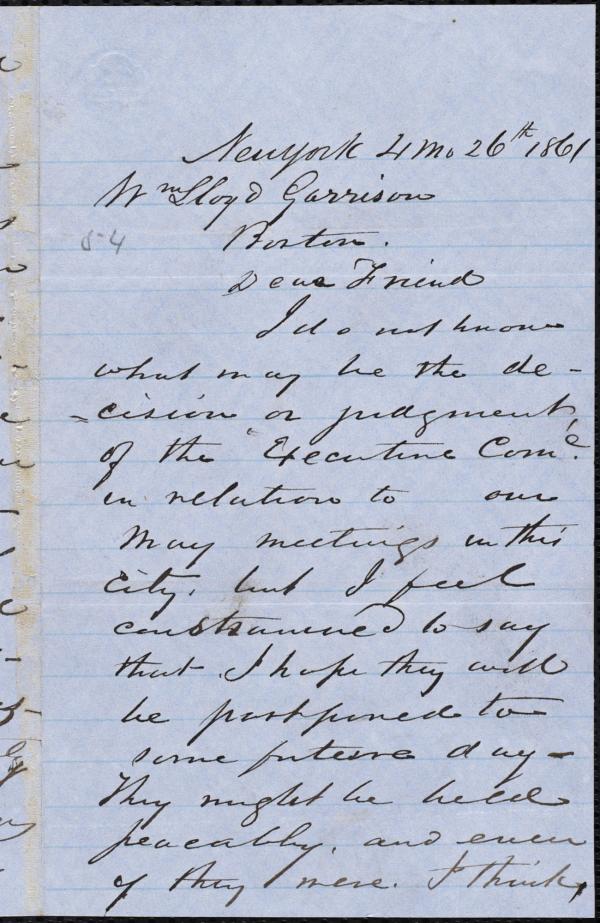 New York 4 Mo 26th 1861
Wm Lloyd Garrison
5-4
Boston.
Dear Friend
I do not know
what may be the de-
=cision or judgment
of the Executive Come.
in relation to our
May meetings in this
City, but I feel
constrained to say
that I hope they will
be postponed to
some future day-
They might be held
peacably, and even
if they were. I think,